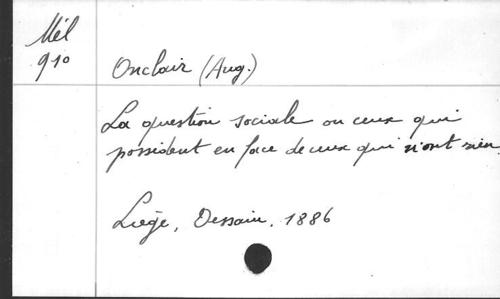 Mél
910
Onclair (Aug.)
La question sociale ou ceux qui
possident en face de ceux qui n'ont rien
Liège, Dessain, 1886